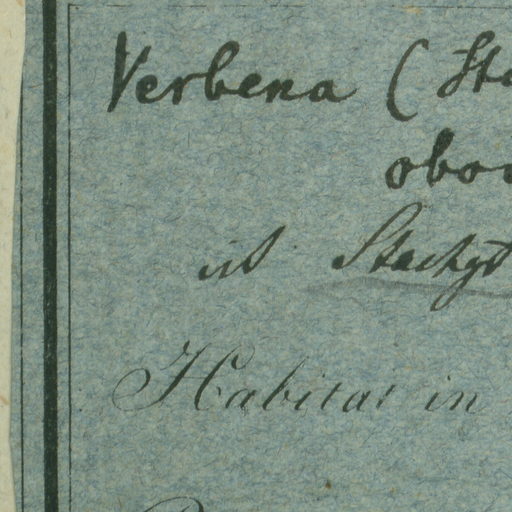 Verbena (Sta
obov
ist Stachyt
Habitat in